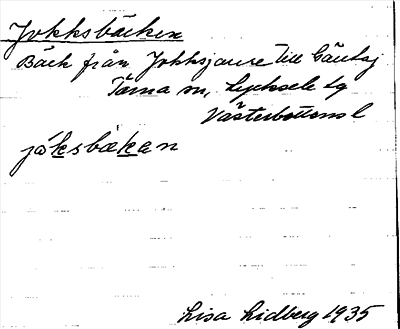 Jokksbäcken
Bäck från Jokksjaure till
Tärna sn, Lycksele lg
Västerbottens l
jóksbäkan
Lisa Lidberg 1935